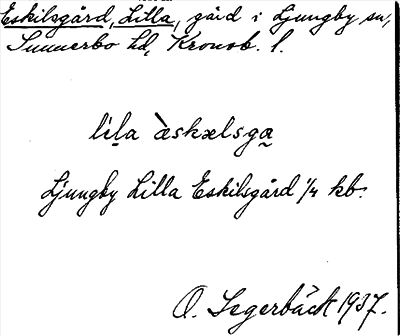 Eskilsgård, Lilla, gård i Ljungby sn,
Sunnerbo hd, Kronob. l.
lìl̰a æ̀skælsga̰
Ljungby Lilla Eskilsgård 1/4 kb.
O. Segerbäck 1937.